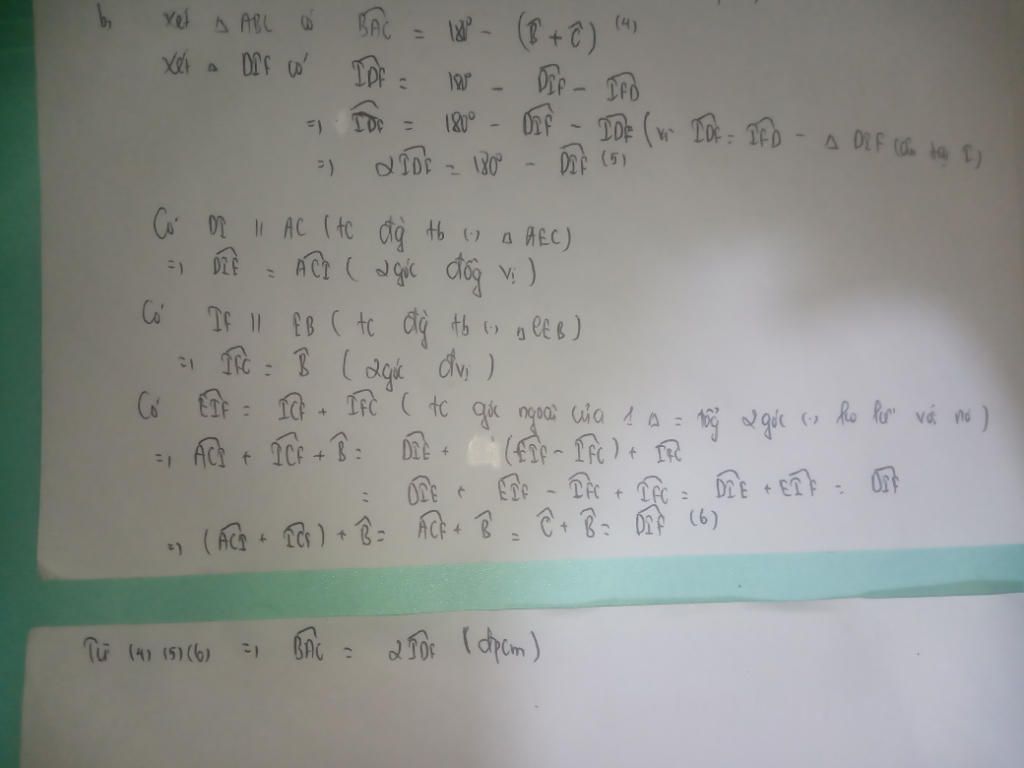 b, Xét △ ABC có B̂AC = 180° - (B̂ + Ĉ) (4)
Xét △ DIF có ÎDF = 180° - D̂IF - ÎFD
=) ÎDF = 180° - D̂IF - ÎDF (vì ÎDF = ÎFD - △ DIF cân tại I)
=) 2ÎDF = 180° - D̂IF (5)
Có DI // AC (tc đg̀ tb (.) △ AEC)
=) D̂IE = ÂCI (2 góc đồg vị)
Có IF // EB (tc đg̀ tb (.) △ CEB)
=) ÎFC = B̂ (2 góc đvị)
Có ÊIF = ÎCF + ÎFC (tc góc ngoài của 1 △ = tổg 2 góc (.) ko kề với nó)
=) ÂCI + ÎCF + B̂ = D̂IE + (ÊIF - ÎFC) + ÎFC
= D̂IE + ÊIF - ÎFC + ÎFC = D̂IE + ÊIF = D̂IF
=) (ÂCI + ÎCF) + B̂ = ÂCF + B̂ = Ĉ + B̂ = D̂IF (6)
Từ (4) (5) (6) =) B̂AC = 2ÎDF (đpcm)